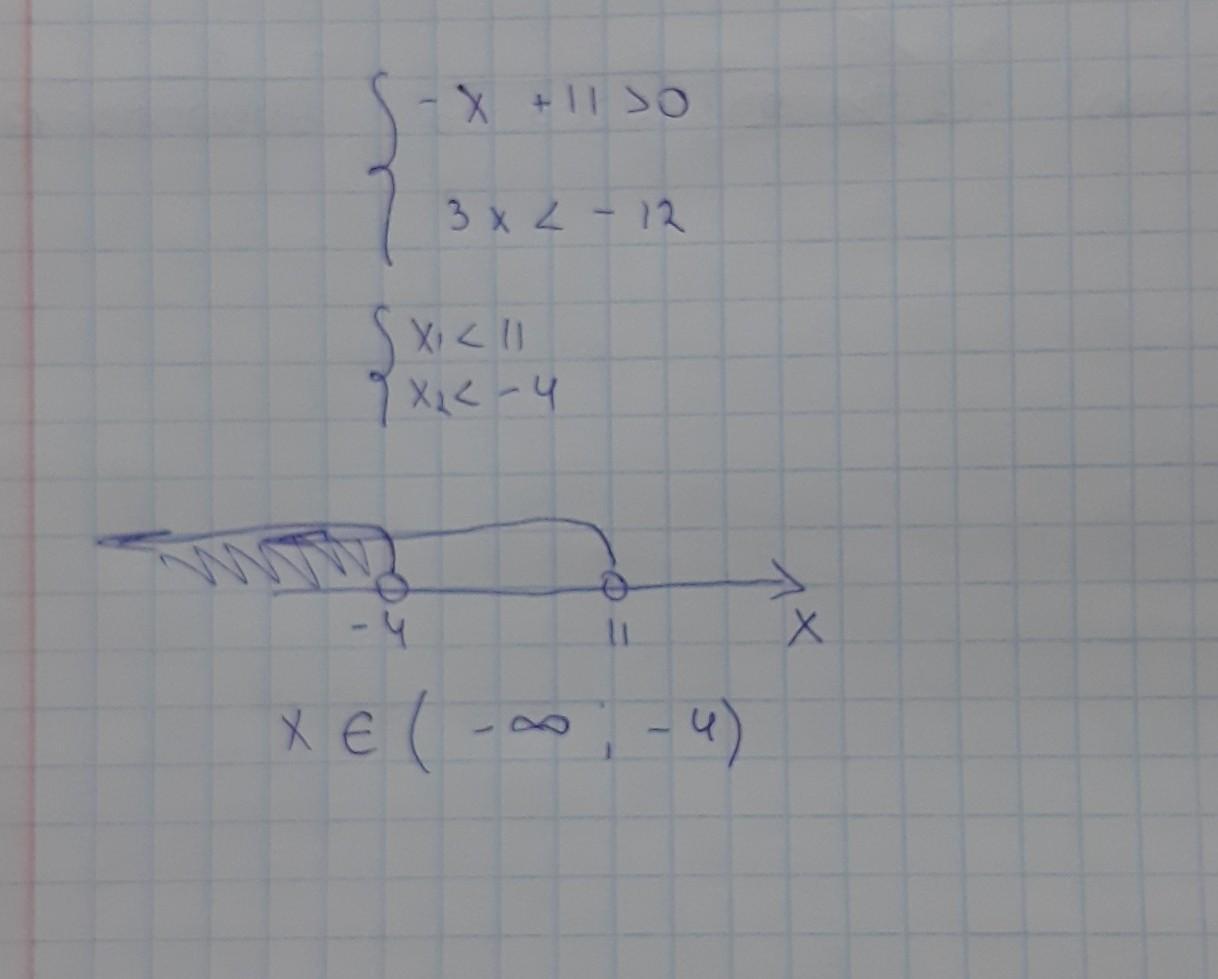 { -x + 11 > 0
3x < -12
{ x₁ < 11
x₂ < -4
-4 11 x
x ∈ ( -∞ ; -4)